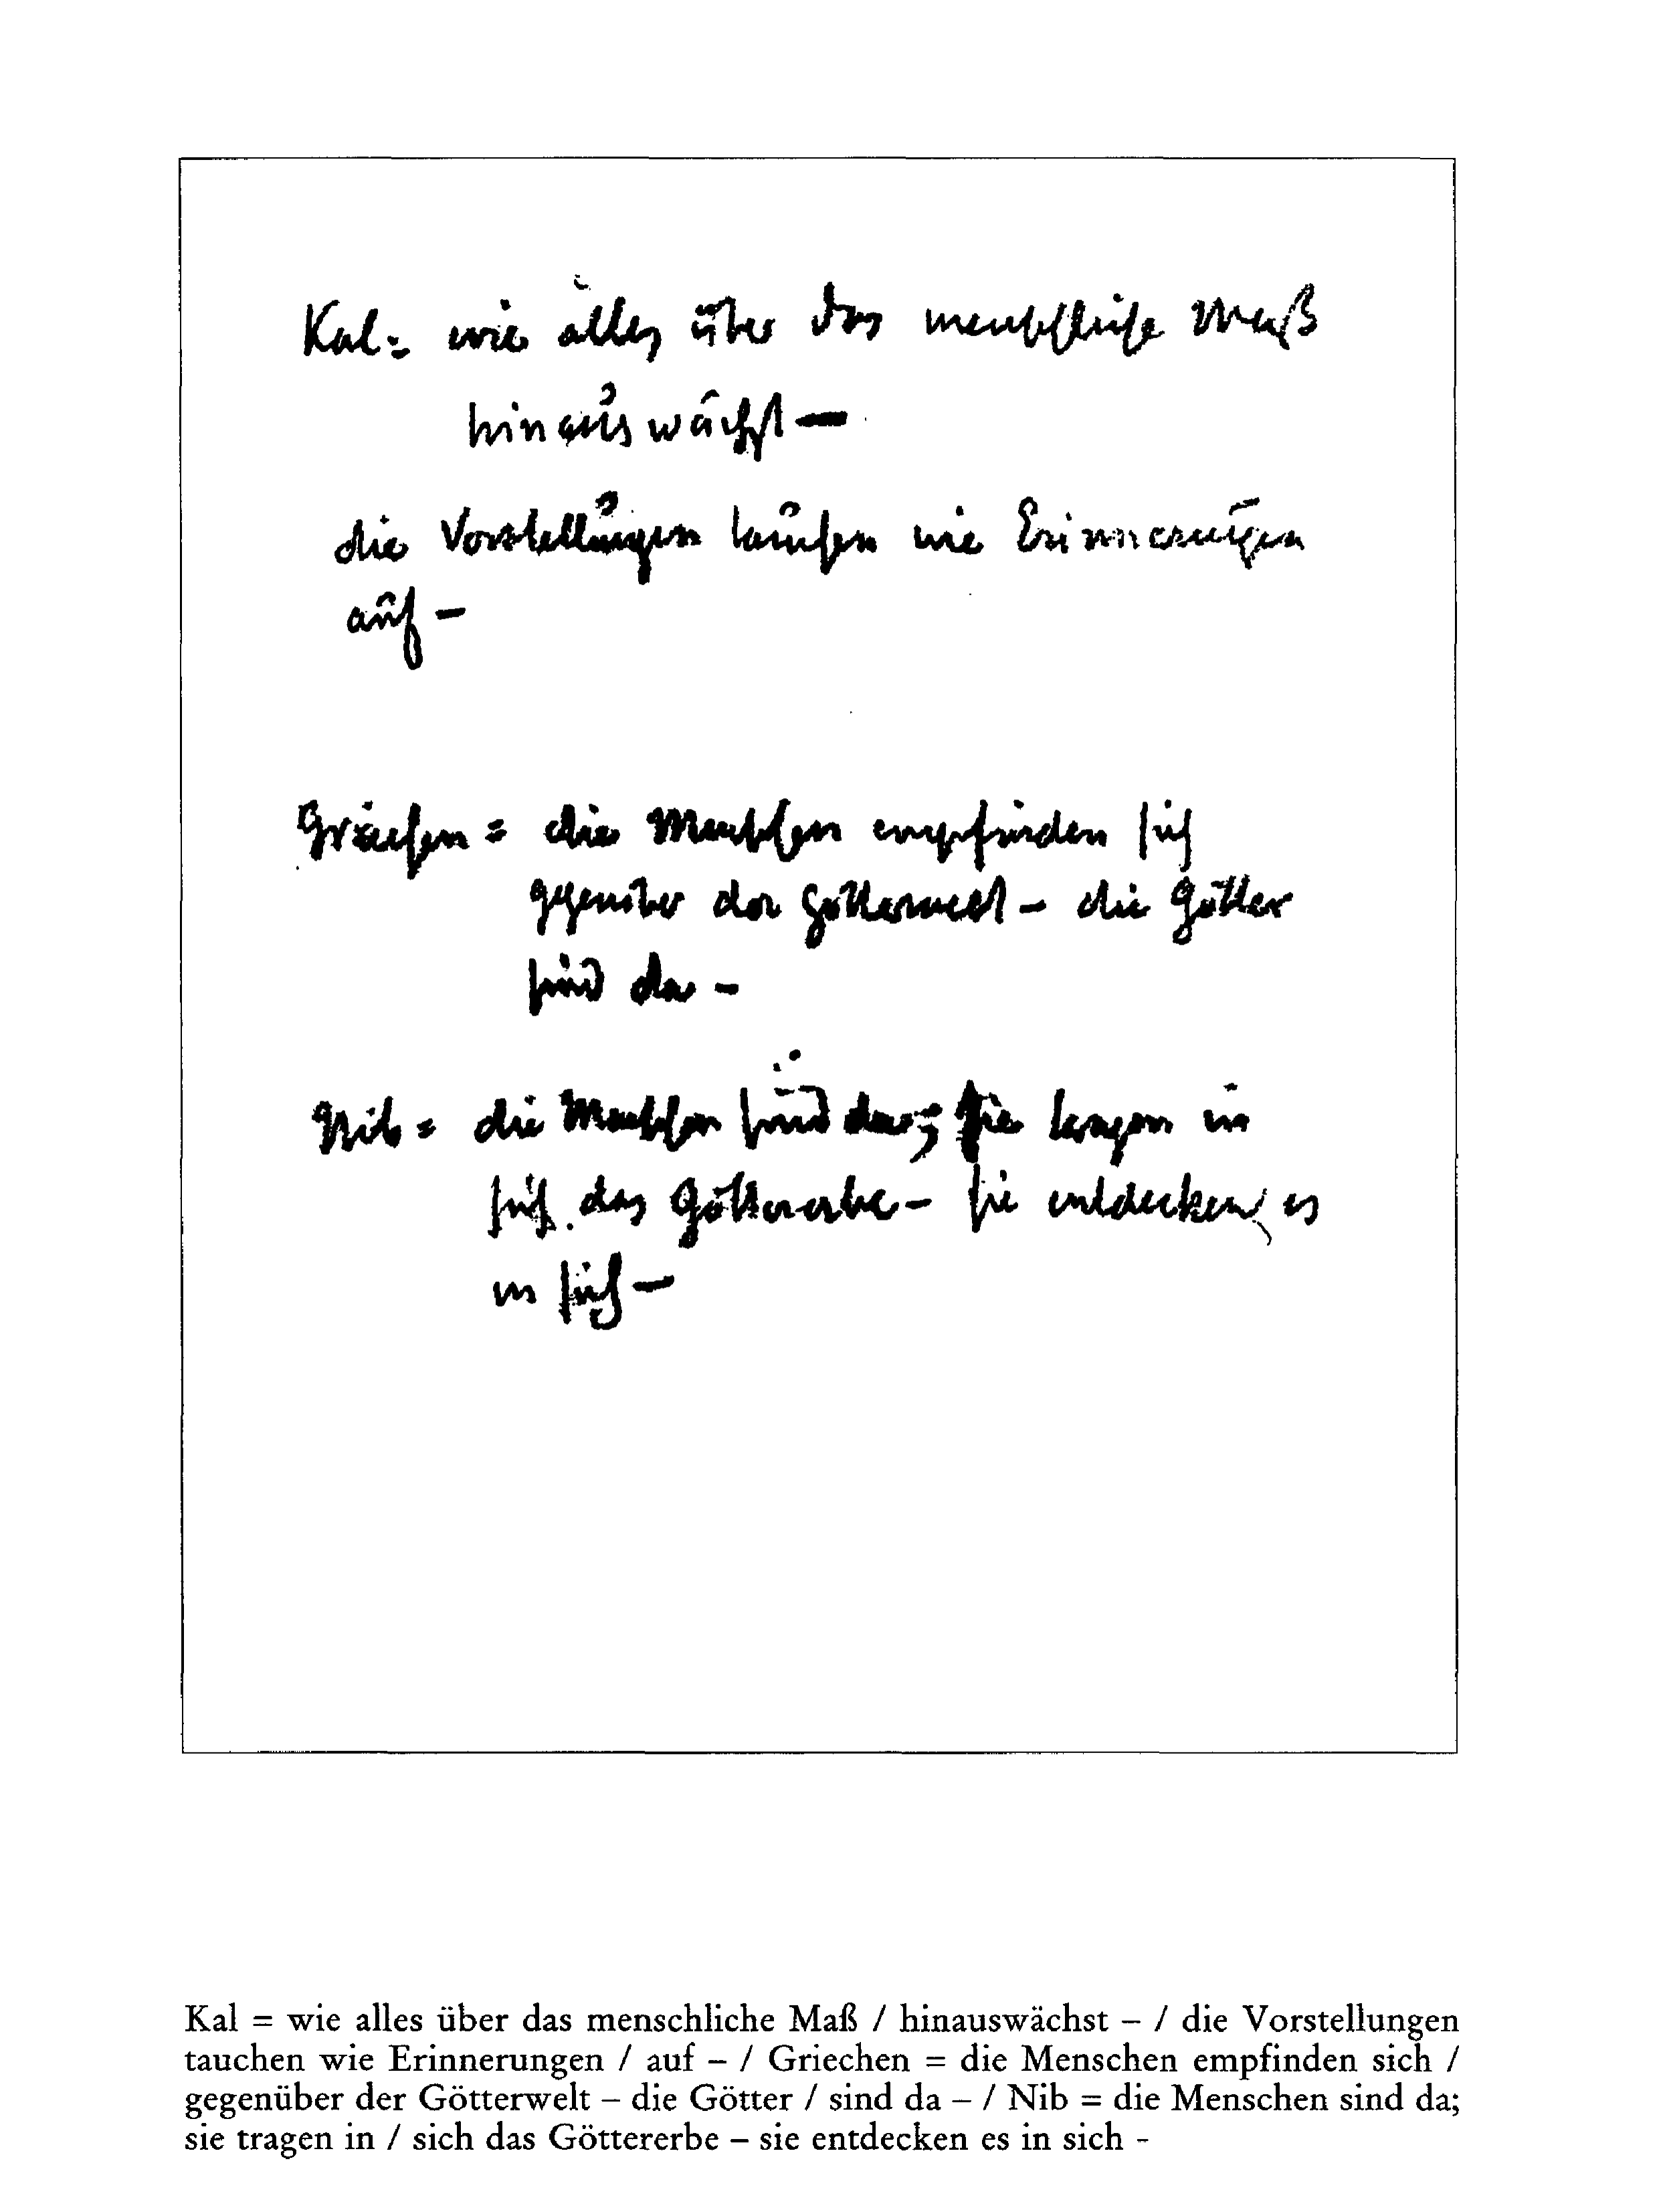 Kal = wie alles über das menschliche Maß
hinauswächst –
die Vorstellungen tauchen wie Erinnerungen
auf –
Griechen = die Menschen empfinden sich
gegenüber der Götterwelt – die Götter
sind da –
Nib = die Menschen sind da; sie tragen in
sich das Göttererbe – sie entdecken es
in sich –
Kal = wie alles über das menschliche Maß / hinauswächst – / die Vorstellungen
tauchen wie Erinnerungen / auf – / Griechen = die Menschen empfinden sich /
gegenüber der Götterwelt – die Götter / sind da – / Nib = die Menschen sind da;
sie tragen in / sich das Göttererbe – sie entdecken es in sich -